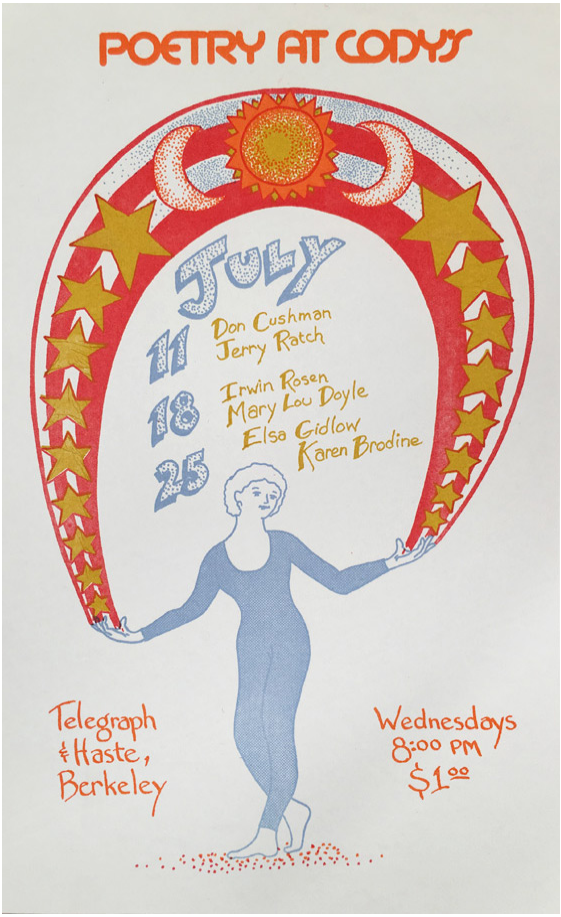 POETRY AT CODY'S
July
11
Don Cushman
Jerry Ratch
18
Irwin Rosen
Mary Lou Doyle
25
Elsa Gidlow
Karen Brodine
Telegraph
& Haste,
Berkeley
Wednesdays
8:00 PM
$1.00